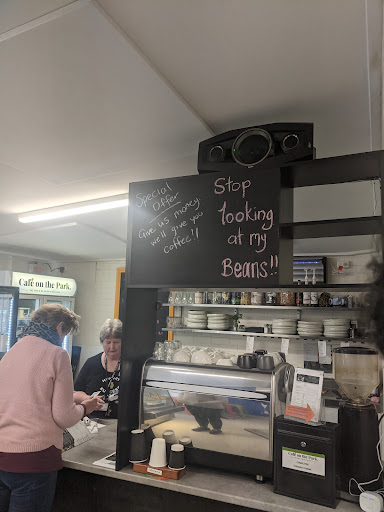 Special
Offer
Give us money
we'll give you
coffee!!
Stop
looking
at my
Beans!!
Café on the Park.
Café on the Park.